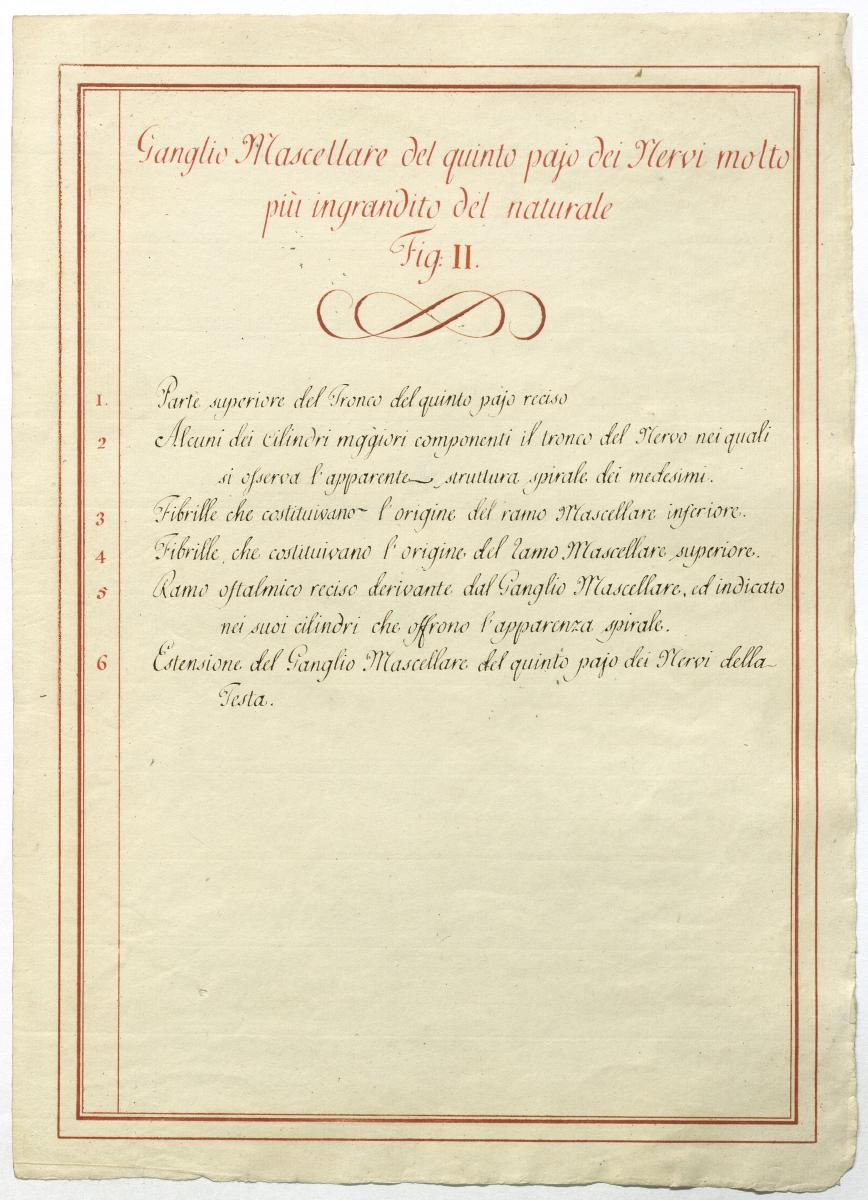 Ganglio Mascellare del quinto pajo dei Nervi molto
più ingrandito del naturale
Fig: II.
1. Parte superiore del Tronco del quinto pajo reciso
2 Alcuni dei cilindri maggiori componenti il tronco del Nervo nei quali
si osserva l'apparente struttura spirale dei medesimi.
3 Fibrille che costituivano l'origine del ramo Mascellare inferiore.
4 Fibrille che costituivano l'origine del ramo Mascellare superiore.
5 Ramo oftalmico reciso derivante dal Ganglio Mascellare, ed indicato
nei suoi cilindri che offrono l'apparenza spirale.
6 Estensione del Ganglio Mascellare del quinto pajo dei Nervi della
Testa.